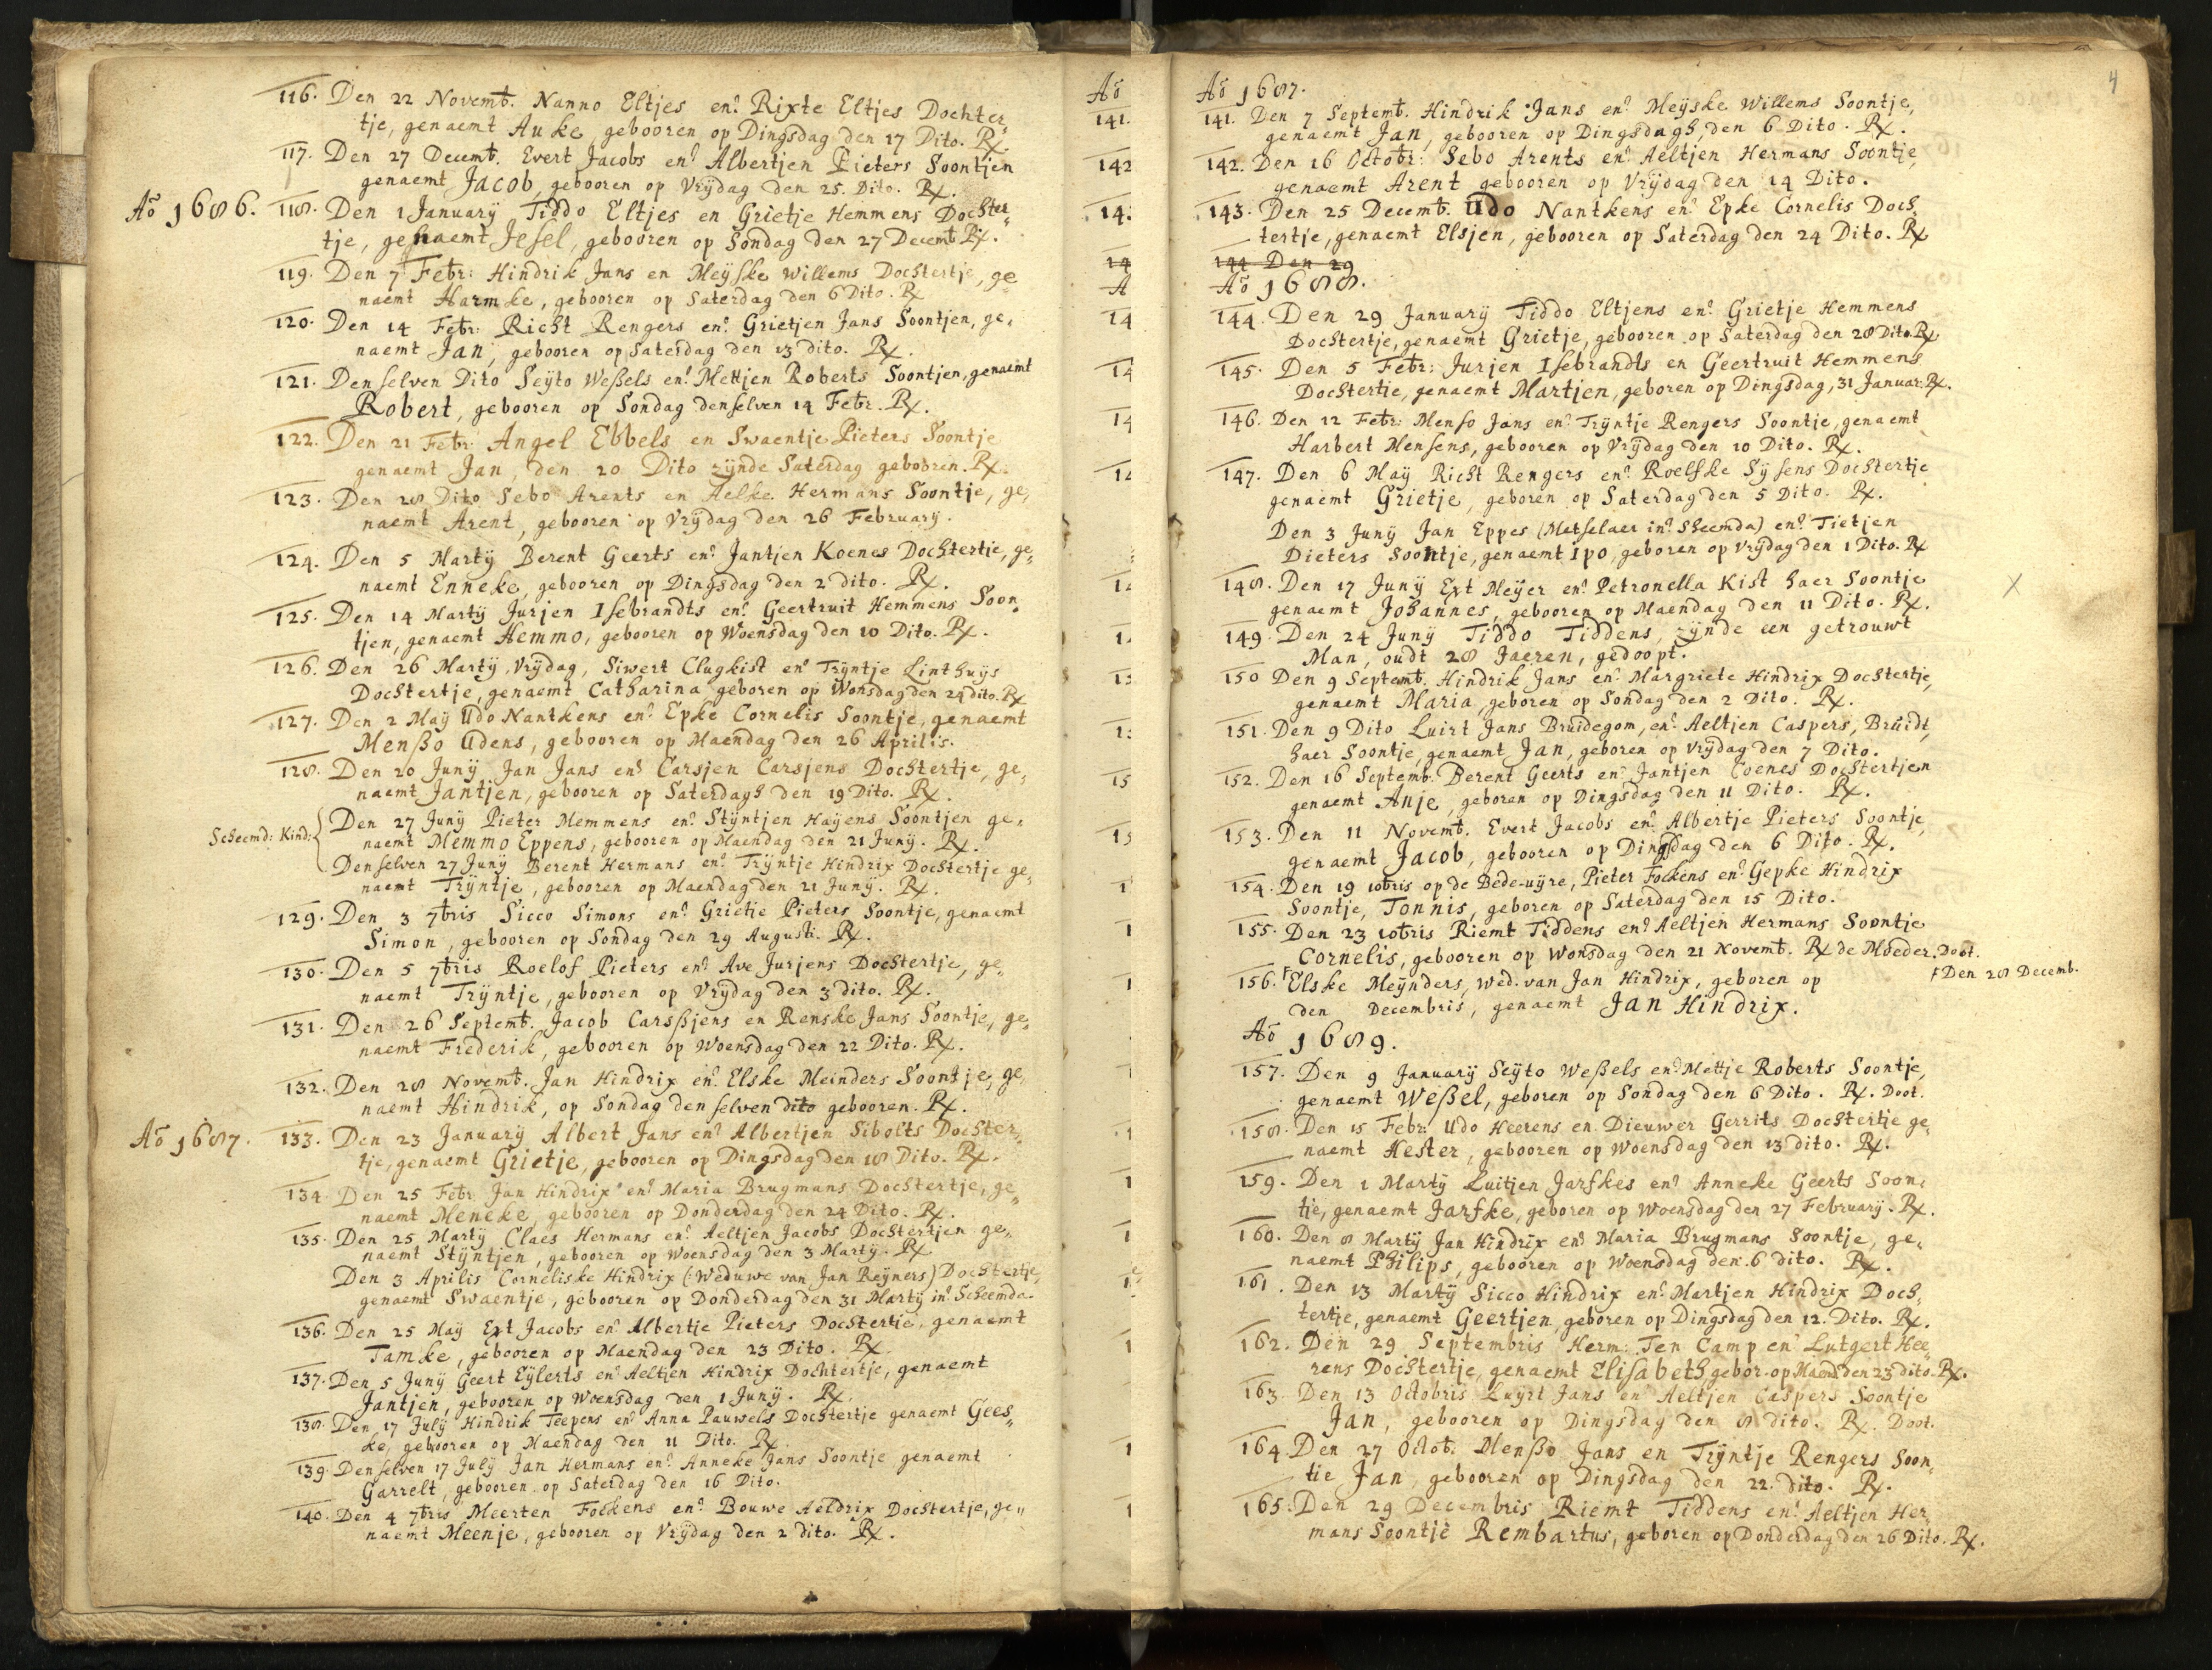 116. Den 22 Novemb. Nanno Eltjes en Rixte Eltjes Dochter„
tje, genaemt Auke, gebooren op Dingsdag den 17 Dito. Rx.
117. Den 27 Decemb. Evert Jacobs en Albertjen Pieters Soontjen
genaemt Jacob, gebooren op Vrÿdag den 25. Dito. Rx.
Aõ 1686. 118. Den 1 Januarÿ Tiddo Eltjes en Grietje Hemmens Dochter„
tje, genaemt Jesel, gebooren op Sondag den 27 Decemb. Rx.
119. Den 7 Febr: Hindrik Jans en Meÿske Willems Dochtertje, ge
naemt Harmke, gebooren op Saterdag den 6 Dito. Rx
120. Den 14 Febr: Richt Rengers en Grietjen Jans Soontjen, ge„
naemt Jan, gebooren op Saterdag den 13 dito. Rx.
121. Denselven Dito Seÿto Weßels en Mettjen Roberts Soontjen, genaemt
Robert, gebooren op Sondag denselven 14 Febr. Rx.
122. Den 21 Febr: Angel Ebbels en Swaentje Pieters Soontje
genaemt Jan, den 20 Dito zÿnde Saterdag gebooren. Rx.
123. Den 28 Dito Sebo Arents en Aelke Hermans Soontje, ge„
naemt Arent, gebooren op Vrÿdag den 26 Februarÿ.
124. Den 5 Martÿ Berent Geerts en Jantjen Koenes Dochtertje, ge„
naemt Enneke, gebooren op Dingsdag den 2 dito. Rx.
125. Den 14 Martÿ Jurjen Isebrandts en Geertruit Hemmens Soon„
tjen, genaemt Hemmo, gebooren op Woensdag den 10 Dito. Rx.
126. Den 26 Martÿ, Vrÿdag, Siwert Clugkist en Trÿntje Linthuÿs
Dochtertje, genaemt Catharina geboren op Wonsdag den 24 dito. Rx
127. Den 2 Maÿ Udo Nantkens en Epke Cornelis Soontje, genaemt
Menßo Udens, gebooren op Maendag den 26 Aprilis.
128. Den 20 Junÿ Jan Jans en Carsjen Carsjens Dochtertje, ge„
naemt Jantjen, gebooren op Saterdagh den 19 Dito. Rx.
Scheemd: Kind: Den 27 Junÿ Pieter Memmens en Stÿntjen Haÿens Soontjen ge„
naemt Memmo Eppens, gebooren op Maendag den 21 Junÿ. Rx.
Denselven 27 Junÿ Berent Hermans en Trÿntje Hindrix Dochtertje ge„
naemt Trÿntje, gebooren op Maendag den 21 Junÿ. Rx.
129. Den 3 7bris Sicco Simons en Grietje Pieters Soontje, genaemt
Simon, gebooren op Sondag den 29 Augusti. Rx.
130. Den 5 7bris Roelof Pieters en Ave Jurjens Dochtertje, ge„
naemt Trÿntje, gebooren op Vrÿdag den 3 dito. Rx.
131. Den 26 Septemb. Jacob Carsßjens en Renske Jans Soontje, ge„
naemt Frederik, gebooren op Woensdag den 22 Dito. Rx.
132. Den 28 Novemb. Jan Hindrix en Elske Meinders Soontje, ge„
naemt Hindrik, op Sondag denselven dito gebooren. Rx.
Aõ 1687. 133. Den 23 Januarÿ Albert Jans en Albertjen Sibolts Dochter„
tje, genaemt Grietje, gebooren op Dingsdag den 18 Dito. Rx.
134. Den 25 Febr. Jan Hindrix en Maria Brugmans Dochtertje, ge„
naemt Meneke, gebooren op Donderdag den 24 Dito. Rx.
135. Den 25 Martÿ Claes Hermans en Aeltjen Jacobs Dochtertjen ge„
naemt Stÿntjen, gebooren op Woensdag den 3 Martÿ. Rx
Den 3 Aprilis Corneliske Hindrix (Weduwe van Jan Reÿners) Dochtertje,
genaemt Swaentje, gebooren op Donderdag den 31 Martÿ in Scheemda.
136. Den 25 Maÿ Ext Jacobs en Albertje Pieters Dochtertje, genaemt
Tamke, gebooren op Maendag den 23 Dito. Rx.
137. Den 5 Junÿ Geert Eÿlerts en Aeltjen Hindrix Dochtertje, genaemt
Jantjen, gebooren op Woensdag den 1 Junÿ. Rx.
138. Den 17 Julÿ Hindrik Teepens en Anna Pauwels Dochtertje genaemt Gees„
ke, gebooren op Maendag den 11 Dito. Rx.
139. Denselven 17 Julÿ Jan Hermans en Anneke Jans Soontje genaemt
Garrelt, gebooren op Saterdag den 16 Dito.
140. Den 4 7bris Meerten Fockens en Bouwe Aeldrix Dochtertje, ge„
naemt Meenje, gebooren op Vrÿdag den 2 dito. Rx.
4
Aõ 1687.
141. Den 7 Septemb. Hindrik Jans en Meÿske Willems Soontje,
genaemt Jan, gebooren op Dingsdagh, den 6 Dito. Rx.
142. Den 16 Octobr: Sebo Arents en Aeltjen Hermans Soontje,
genaemt Arent gebooren op Vrÿdag den 14 Dito.
143. Den 25 Decemb. Udo Nantkens en Epke Cornelis Doch„
tertje, genaemt Elsjen, gebooren op Saterdag den 24 Dito. Rx
144 Den 29
Aõ 1688.
144. Den 29 Januarÿ Tiddo Eltjens en Grietje Hemmens
Dochtertje, genaemt Grietje, gebooren op Saterdag den 28 Dito. Rx
145. Den 5 Febr: Jurjen Isebrandts en Geertruit Hemmens
Dochtertie, genaemt Martjen, geboren op Dingsdag, 31 Januar. Rx.
146. Den 12 Febr: Menso Jans en Trÿntje Rengers Soontje, genaemt
Harbert Mensens, gebooren op Vrÿdag den 10 Dito. Rx.
147. Den 6 Maÿ Richt Rengers en Roelfke Sÿsens Dochtertje
genaemt Grietje, geboren op Saterdag den 5 Dito. Rx.
Den 3 Junÿ Jan Eppes (Metselaer in Sheemda) en Tietjen
Pieters Soontje, genaemt Ipo, geboren op Vrÿdag den 1 Dito. Rx
148. Den 17 Junÿ Ext Meÿer en Petronella Kist haer Soontje X
genaemt Johannes, gebooren op Maendag den 11 Dito. Rx.
149. Den 24 Junÿ Tiddo Tiddens, zÿnde een getrouwt
Man, oudt 28 Jaeren, gedoopt.
150 Den 9 Septemb. Hindrik Jans en Margriete Hindrix Dochtertje,
genaemt Maria, geboren op Sondag den 2 Dito. Rx.
151. Den 9 Dito Luirt Jans Bruidegom, en Aeltjen Caspers, Bruidt,
haer Soontje, genaemt Jan, geboren op Vrÿdag den 7 Dito.
152. Den 16 Septemb. Berent Geerts en Jantjen Coenes Dochtertjen
genaemt Anje, geboren op Dingsdag den 11 Dito. Rx.
153. Den 11 Novemb. Evert Jacobs en Albertje Pieters Soontje,
genaemt Jacob, gebooren op Dingsdag den 6 Dito. Rx.
154. Den 19 10bris op de Bede-uÿre, Pieter Fockens en Gepke Hindrix
Soontje, Tonnis, geboren op Saterdag den 15 Dito.
155. Den 23 10bris Riemt Tiddens en Aeltjen Hermans Soontje
Cornelis, gebooren op Wonsdag den 21 Novemb. Rx de Moeder. Doot.
156. Elske Meÿnders, Wed. van Jan Hindrix, geboren op Den 28 Decemb.
den Decembris, genaemt Jan Hindrix.
Aõ 1689.
157. Den 9 Januarÿ Seÿto Weßels en Mettje Roberts Soontje,
genaemt Weßel, geboren op Sondag den 6 Dito. Rx. Doot.
158. Den 15 Febr. Udo Heerens en Dieuwer Gerrits Dochtertje ge„
naemt Hester, gebooren op Woensdag den 13 dito. Rx.
159. Den 1 Martÿ Luitjen Jarfkes en Anneke Geerts Soon„
tje, genaemt Jarfke, geboren op Woensdag den 27 Februarÿ. Rx.
160. Den 8 Martÿ Jan Hindrix en Maria Brugmans Soontje, ge„
naemt Philips, gebooren op Woensdag den 6 dito. Rx.
161. Den 13 Martÿ Sicco Hindrix en Martjen Hindrix Doch„
tertje, genaemt Geertjen, geboren op Dingsdag den 12. Dito. Rx.
162. Den 29 Septembris Herm: Ten Camp en Lutgert Hee„
rens Dochtertje, genaemt Elisabeth, gebor. op Maend den 23 dito. Rx.
163. Den 13 Octobris Luÿrt Jans en Aeltjen Caspers Soontje
Jan, gebooren op Dingsdag den 8 dito. Rx. Doot.
164. Den 27 Octob. Menßo Jans en Trÿntje Rengers Soon„
tie Jan, gebooren op Dingsdag den 22 dito. Rx.
165. Den 29 Decembris Riemt Tiddens en Aeltjen Her„
mans Soontje Rembartus, geboren op Donderdag den 26 Dito. Rx.